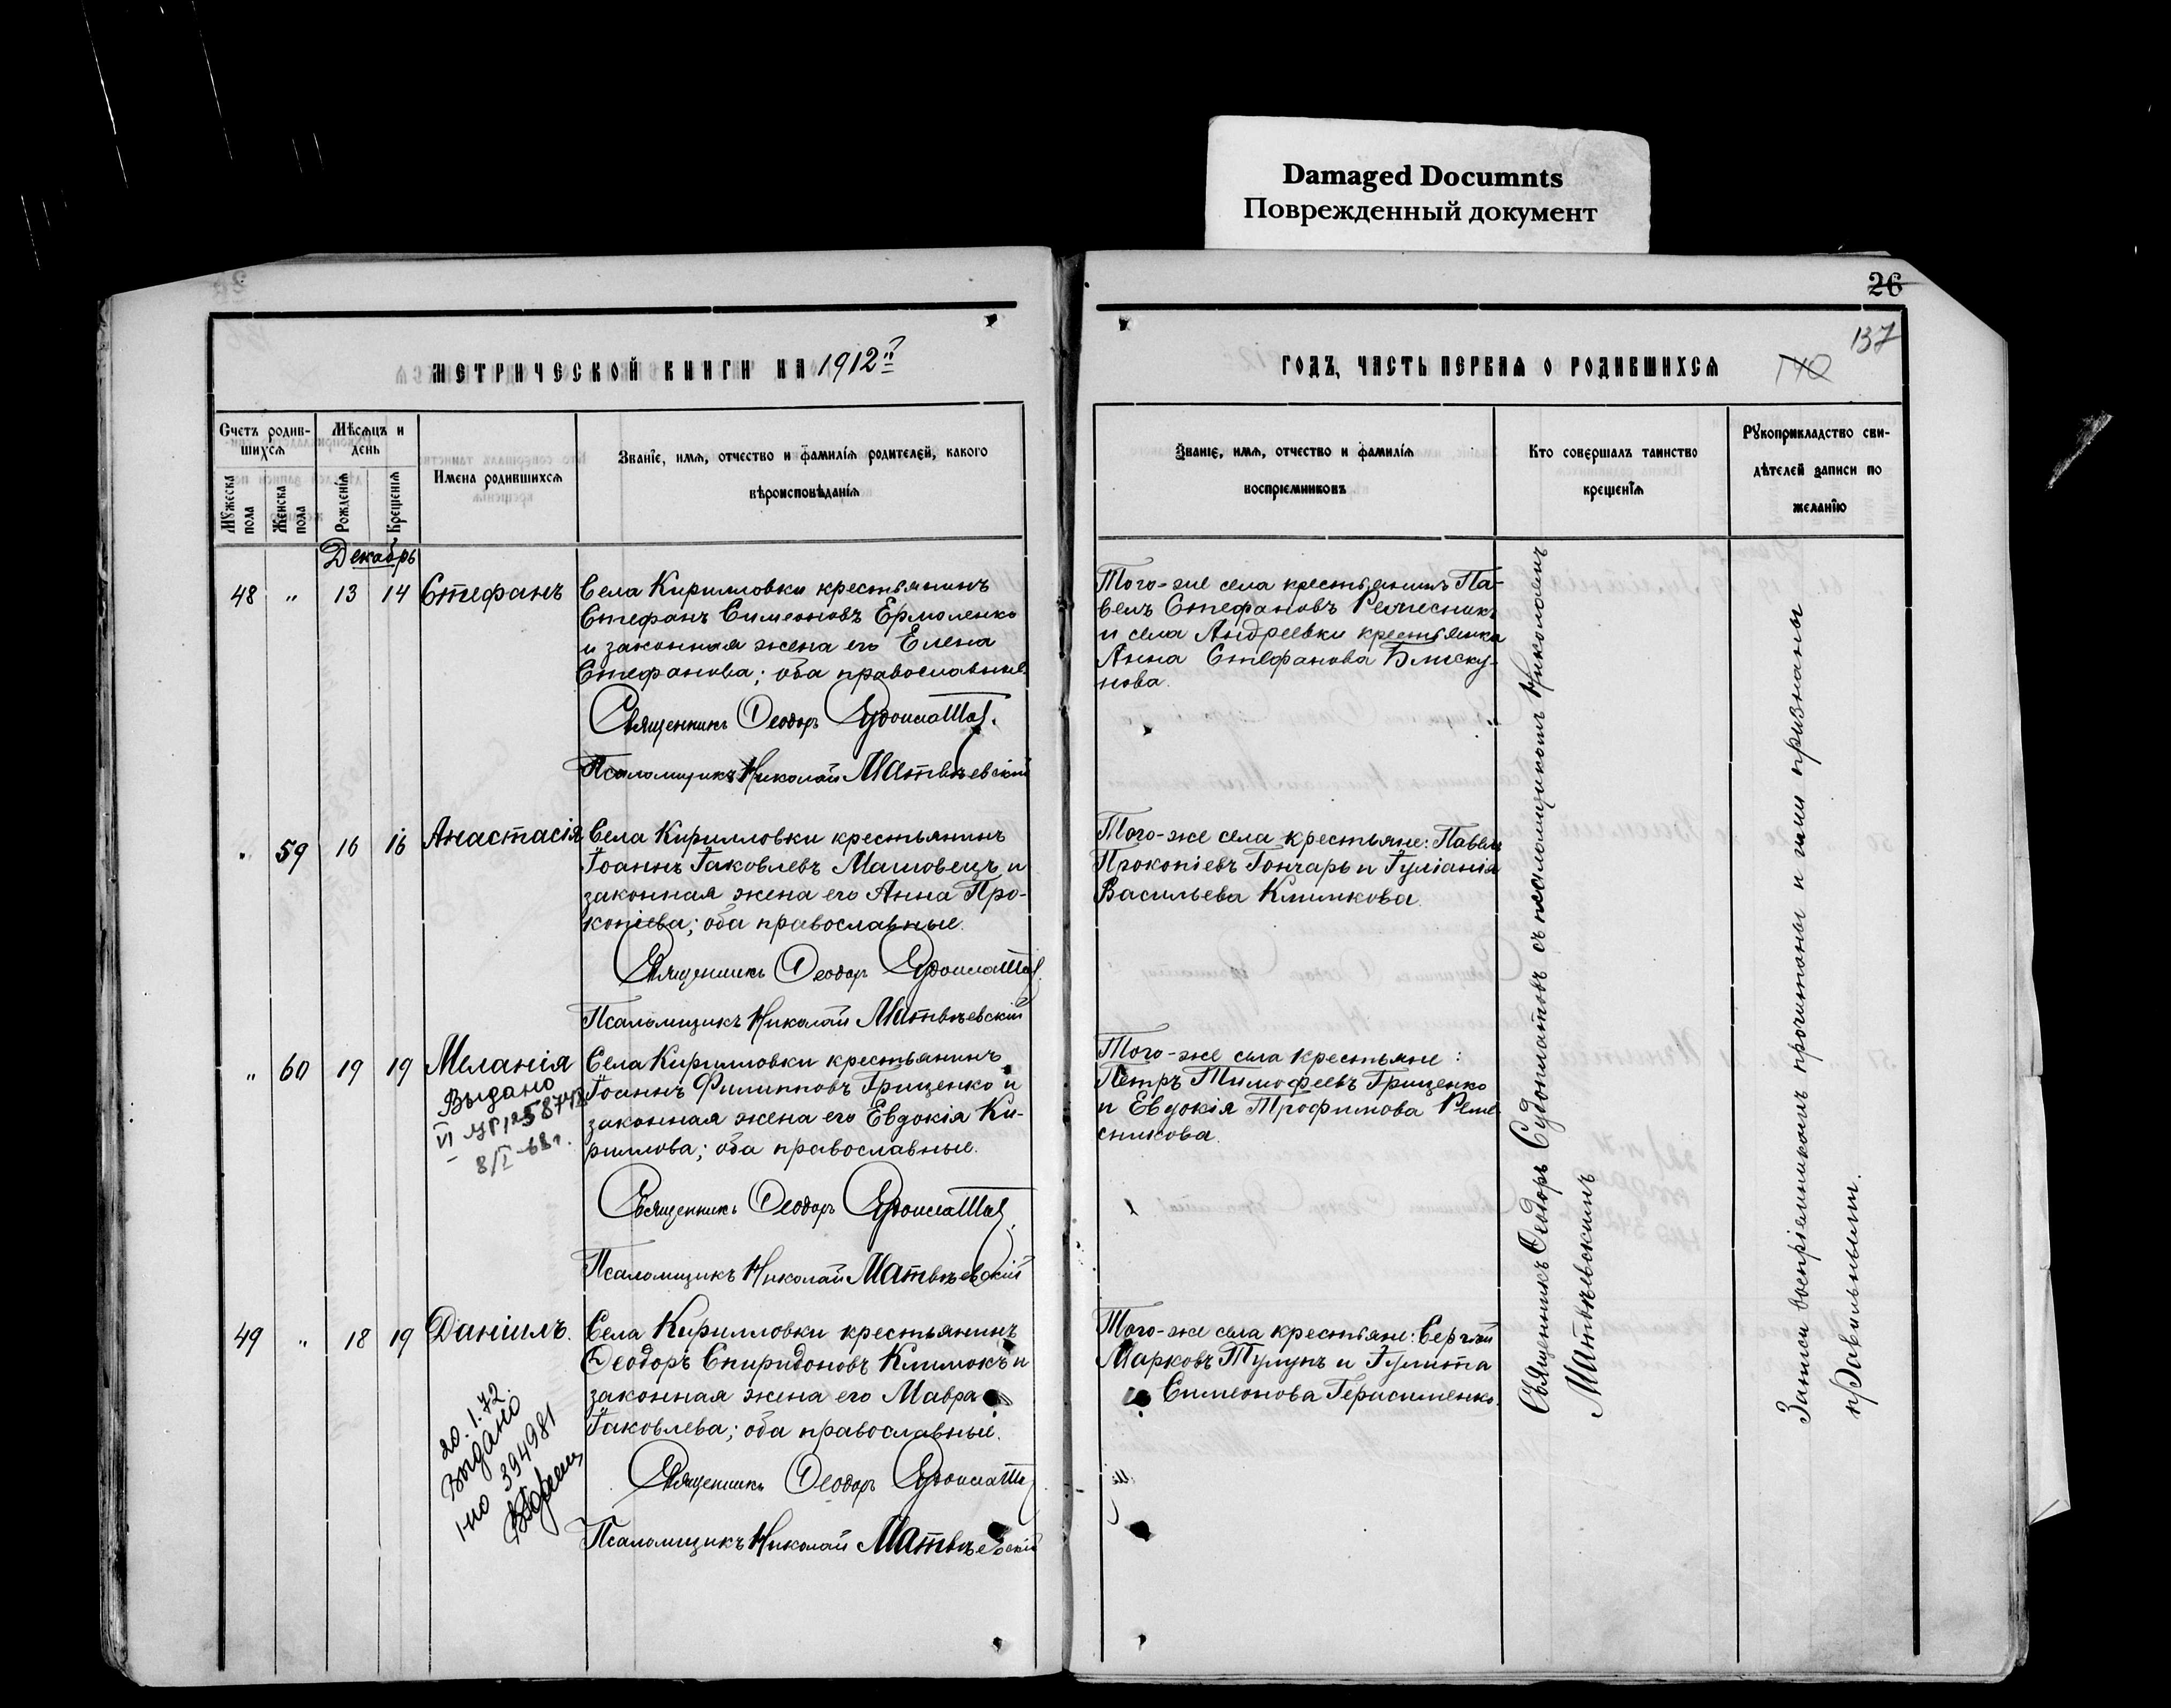 Damaged Documnts
Поврежденный документ
26
137
140
МЕТРИЧЕСКОЙ КНИГИ НА 1912й
ГОДЪ, ЧАСТЬ ПЕРВАЯ О РОДИВШИХСЯ
Счетъ родив-
шихся
Мужеска
пола
Женска
пола
Мѣсяцъ и
день
Рожденія
Крещенія
Имена родившихся
Званіе, имя, отчество и фамилія родителей, какого
вѣроисповѣданія
Званіе, имя, отчество и фамилія
воспріемниковъ
Кто совершалъ таинство
крещенія
Рукоприкладство сви-
дѣтелей записи по
желанію
Декабрь
48 " 13 14 Стефанъ
Села Кирилловки крестьянинъ
Стефанъ Симеоновъ Ермоленко
и законная жена его Елена
Стефанова; оба православные.
Священникъ Ѳеодоръ
Псаломщикъ Николай Матвѣевскій
Того-же села крестьянинъ Па-
велъ Стефановъ Ремесникъ
и села Андреевки крестьянка
Анна Стефанова Блиску-
нова.
" 59 16 16 Анастасія
Села Кирилловки крестьянинъ
Іоаннъ Іаковлевъ Машовецъ и
законная жена его Анна Про-
копіева; оба православные.
Священникъ Ѳеодоръ
Псаломщикъ Николай Матвѣевскій
Того-же села крестьяне: Павелъ
Прокопіевъ Гончаръ и Іуліанія
Васильева Климкова.
" 60 19 19 Меланія
Выдано
VI УР 1258748
8/I-68г.
Села Кирилловки крестьянинъ
Іоаннъ Филипповъ Грищенко и
законная жена его Евдокія Ки-
риллова; оба православные.
Священникъ Ѳеодоръ
Псаломщикъ Николай Матвѣевскій
Того-же села крестьяне:
Петръ Тимофеевъ Грищенко
и Евдокія Трофимова Реме-
сникова.
49 " 18 19 Даніилъ.
20.1.72
Выдано
I-НО 394981
Села Кирилловки крестьянинъ
Ѳеодоръ Спиридоновъ Климокъ и
законная жена его Мавра
Іаковлева; оба православные.
Священникъ Ѳеодоръ
Псаломщикъ Николай Матвѣевскій
Того-же села крестьяне: Сергій
Марковъ Тулупъ и Іулита
Симеонова Герасименко.
Священникъ Ѳеодоръ съ псаломщикомъ Николаемъ
Матвѣевскимъ
Записи воспріемникомъ прочитаны и ими признаны
правильными.